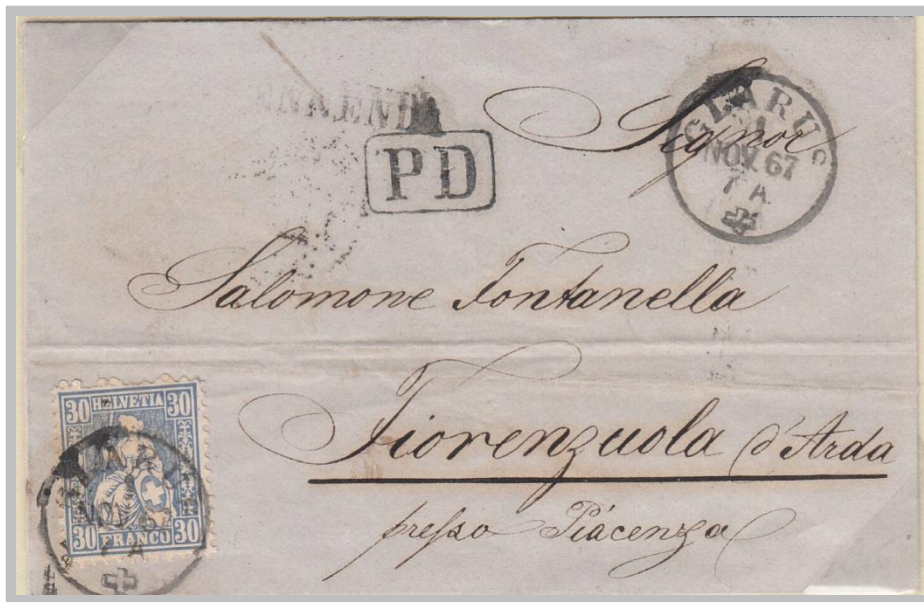 ENNENDA
PD
GLARUS
NOV. 67
7 A
Signor
Salomone Fontanella
Fiorenzuola d'Arda
presso Piacenza
30 HELVETIA 30
30 FRANCO 30
GLARUS
NOV. 6
7 A